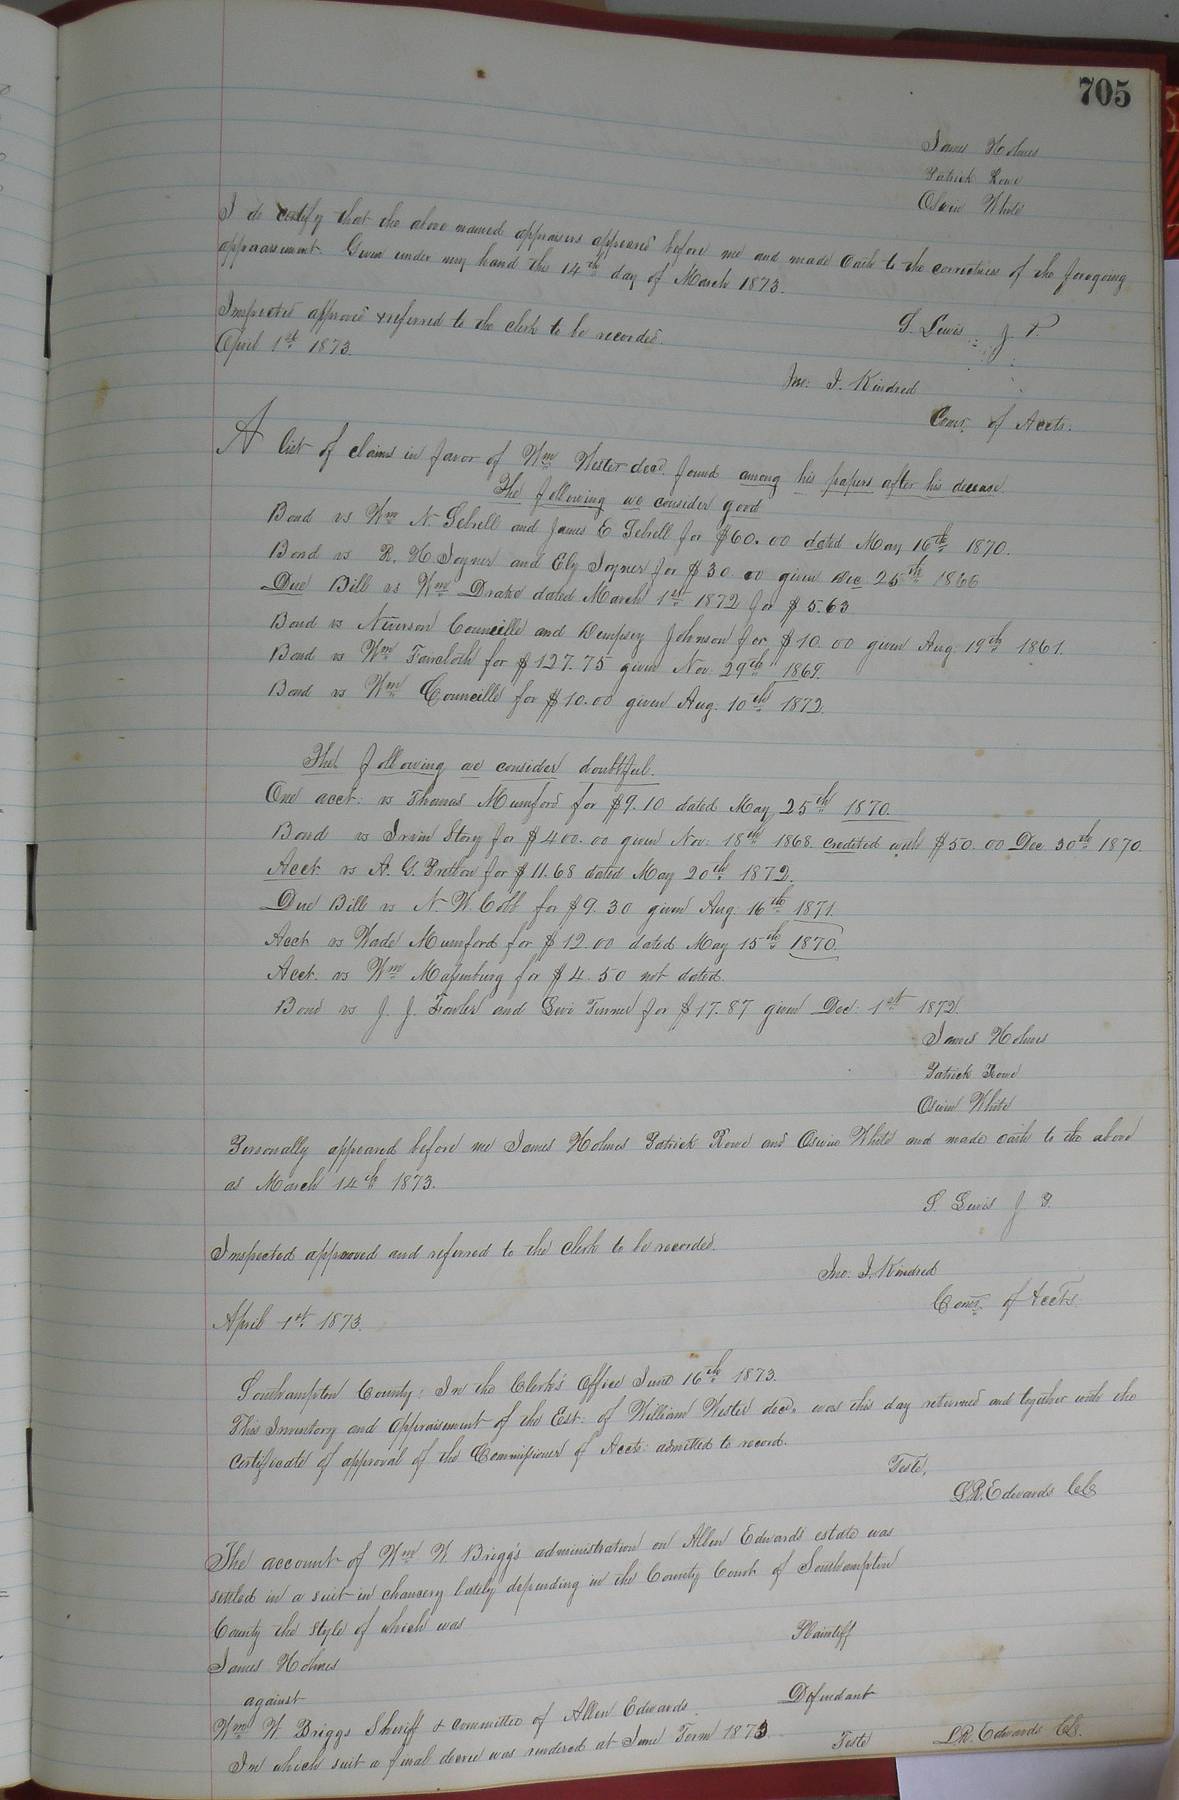 705
James Holmes
Patrick Rowe
Oswin White
I do certify that the above named appraisers appeared before me and made oath to the correctness of the foregoing
appraisement. Given under my hand this 14th day of March 1873.
S. Lewis J P
Inspected approved & referred to the clerk to be recorded.
April 1st 1873.
Jno. J. Kindred
Comr. of Accts.
A list of claims in favor of Wm Wester decd. found among his papers after his decease
The following we consider good
Bond vs Wm N. Sebrell and James E Sebrell for $60.00 dated May 16th 1870.
Bond vs R. H. Joyner and Ely Joyner for $30.00 given Dec 25th 1866
Due Bill vs Wm Drake dated March 1st 1872 for $5.63
Bond vs Councille and Dempsey Johnson for $10.00 given Aug. 19th 1861.
Bond vs Wm Faircloth for $127.75 given Nov. 29th 1869.
Bond vs Wm Councille for $10.00 given Aug. 10th 1872.
The following we consider doubtful.
One acct. vs Thomas Mumford for $9.10 dated May 25th 1870.
Bond vs Irvin Story for $400.00 given Nov. 18th 1868. credited with $50.00 Dec 30th 1870
Acct vs A. G. for $11.68 dated May 20th 1872.
Due Bill vs N. W. Cobb for $9.30 given Aug. 16th 1871.
Acct vs Wade Mumford for $12.00 dated May 15th 1870.
Acct. vs Wm Massenburg for $4.50 not dated.
Bond vs J. J. Fowler and Levi Turner for $17.87 given Dec. 1st 1872.
James Holmes
Patrick Rowe
Oswin White
Personally appeared before me James Holmes Patrick Rowe and Oswin White and made oath to the above
as March 14th 1873.
S. Lewis J P.
Inspected approved and referred to the clerk to be recorded.
Jno. J. Kindred
Comr. of Accts.
April 1st 1873.
Southampton County: In the Clerk's Office June 16th 1873.
This Inventory and Appraisement of the Est. of William Wester decd. was this day returned and together with the
certificate of approval of the Commissioner of Accts. admitted to record.
Teste,
L.R. Edwards C.C.
The account of Wm W Briggs administration on Allen Edwards estate was
settled in a suit in chancery lately depending in the County Court of Southampton
County the style of which was
James Holmes Plaintiff
against
Wm W Briggs Sheriff & committee of Allen Edwards. Defendant
In which suit a final decree was rendered at June Term 1873. Teste L.R. Edwards C.C.